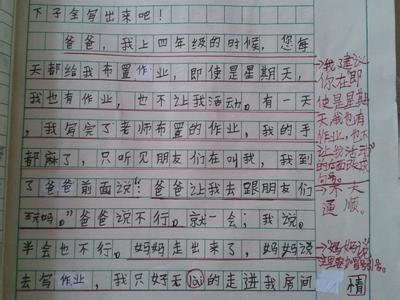 下子全写出来吧！
爸爸，我上四年级的时候，您每
天都给我布置作业，即使是星期天，
我也有作业，也不让我活动。有一天
，我写完了老师布置的作业，我的手
都麻了，只听见朋友们在叫我，我到
了爸爸前面说："爸爸让我去跟朋友们
玩吗。"爸爸说不行。就一会；我说。
半会也不行。妈妈走出来了，妈妈说
去写作业，我只好无lài的走进我房间
情
我建议
你在即
使是星期
天我也有
作业，也不
让我活动
的后面改成
句号。
不大
通顺。
妈妈说